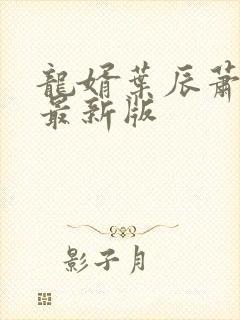 龍婿葉辰蕭
最新版
影子月